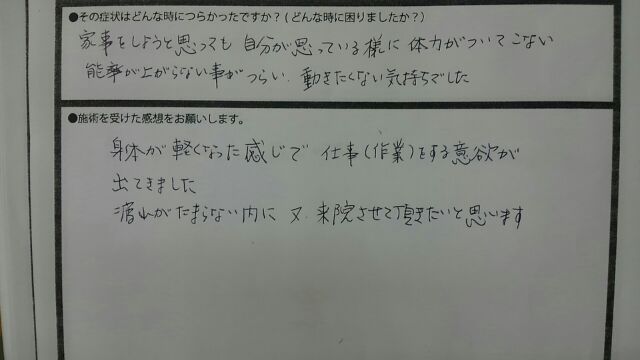 ●その症状はどんな時につらかったですか？(どんな時に困りましたか？)
家事をしようと思っても 自分が思っている様に 体力がついてこない
能率が上がらない事がつらい、動きたくない気持ちでした
●施術を受けた感想をお願いします。
身体が軽くなった感じで 仕事(作業)をする意欲が
出てきました
疲れがたまらない内に 又、来院させて頂きたいと思います